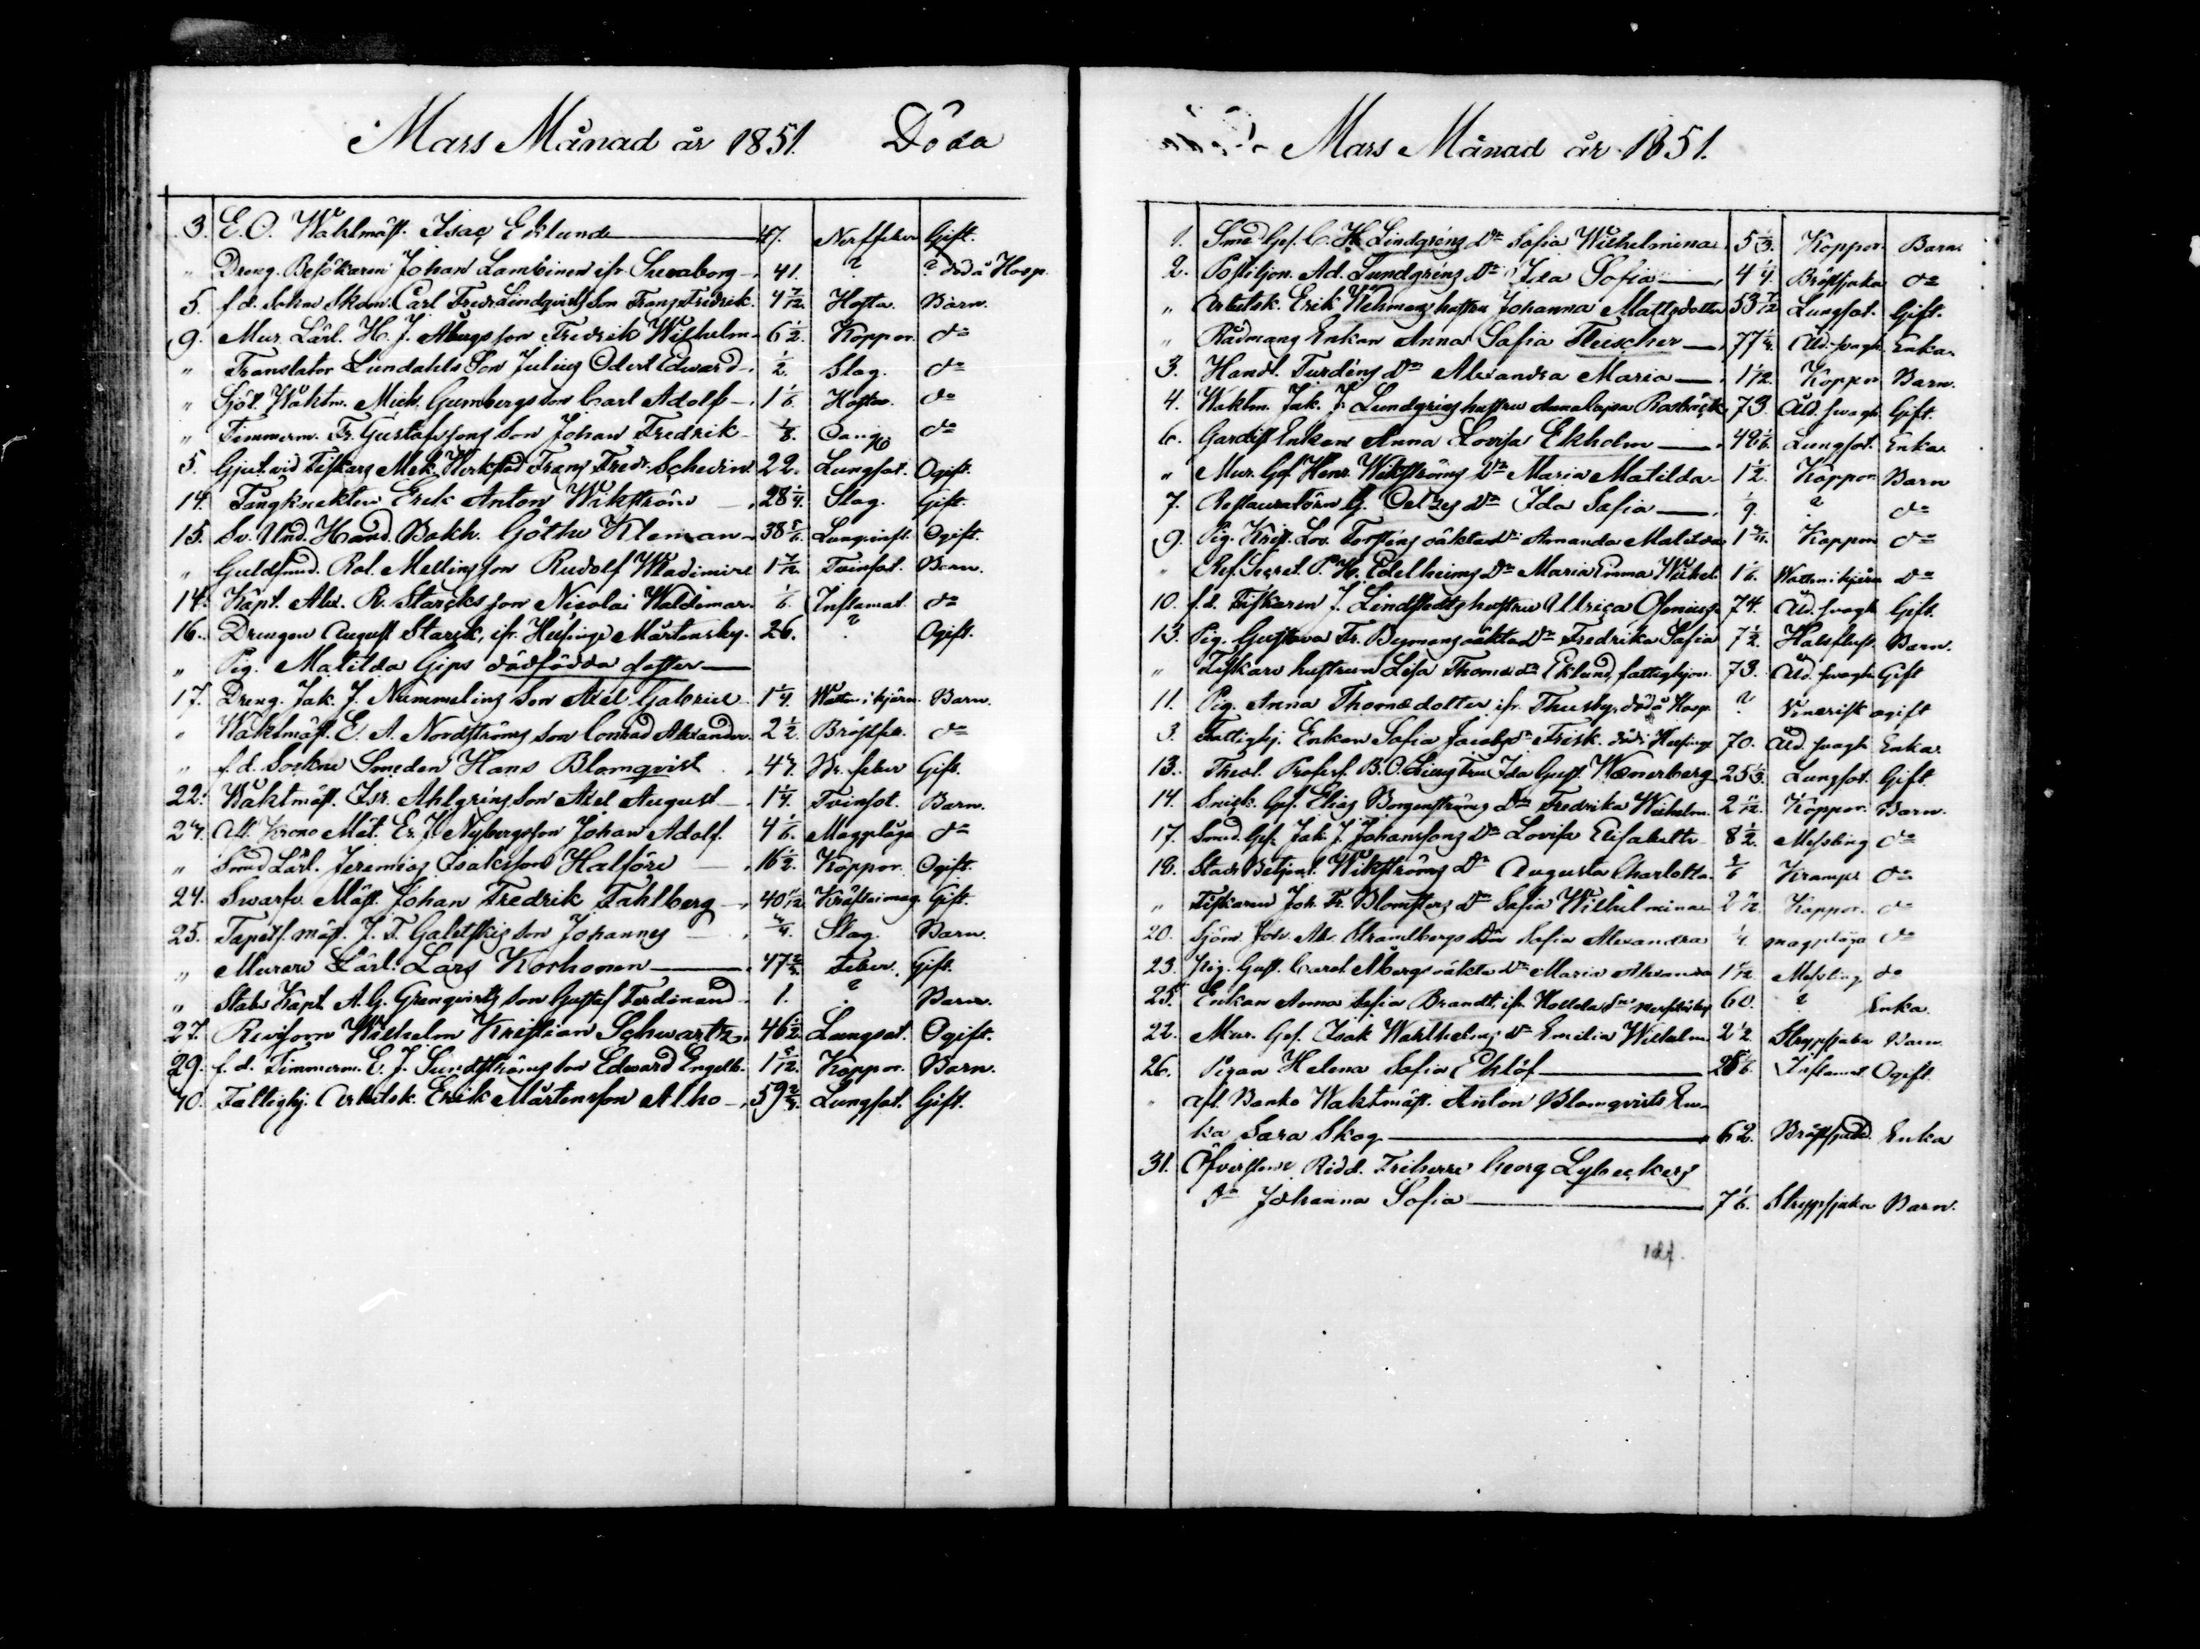 Mars Månad år 1851. Döda
3. E. O. Waktmäst. Isac Eklund 47. Nerffeber Gift.
" Dreng. Besökaren Johan Lambinen ifr. Sveaborg 41. ? ? död å Hosp.
5. f. d. Sokne Skom. Carl Fredr. Lindqvists Son Franz Fredrik 4 7/12. Hosta. Barn.
9. Mur. Lärl. H. J. Åbergs son Fredrik Wilhelm 6 1/2. Koppor. do
" Translator Lundahls Son Julius Edvard 1/2. Slag. do
" Sjöt. Waktm. Mich. Gumbergs son Carl Adolf 1 1/6. Hosta. do
" Timmerm. Fr. Gustafssons Son Johan Fredrik 1/8. do
5. Gjut. vid Fiskars Mek. Werkstad Franz Fredr. Schevin 22. Lungsot. Ogift.
14. Fångknekten Erik Anton Wikström 28 1/4. Slag. Gift.
15. Sv. Und. Hand. Bokh. Göthe Kleman 38 5/6. Lunginfl. Ogift.
" Guldsmed. Rol. Mellins son Rudolf Wladimir 1 7/12. Tvinsot. Barn.
14. Kapt. Alex. R. Starcks son Nicolai Waldemar 1/6. Inflamat. do
16. Drengen August Starck, ifr. Helsinge Mårtensby. 26. ? Ogift.
" Pig. Matilda Gips dödfödda dotter
17. Dreng. Jak. J. Nummelins Son Axel Gabriel 1 1/4. Watten i hjärn. Barn.
" Waktmäst. E. A. Nordströms son Conrad Alexander 2 1/2. Bröstfe. do
" f. d. Sockne Smeden Hans Blomqvist 47. Nr. feber Gift.
22. Waktmäst. Isr. Ahlgrens Son Axel August 1 1/4. Tvinsot. Barn.
24. Aft. Krono Måt. Er. J. Nybergs son Johan Adolf. 4 1/6. Magplåga do
" Smed Lärl. Jeremias Isaksson Halföre 16 1/2. Koppor. Ogift.
24. Swarfv. Mäst. Johan Fredrik Fahlberg 40 11/12. Kräfta i mag. Gift.
25. Tapets. mäst. J. F. Galetskis Son Johannes 3/4. Slag. Barn.
" Murare Lärl. Lars Korhonen 47 2/3. Feber. Gift.
" Stabs Kapt. A. G. Granqvists Son Gustaf Ferdinand 1. ? Barn.
27. Revisorn Wilhelm Kristian Schwartz 46 1/2. Lungsot. Ogift.
29. f. d. Timmerm. E. J. Sundströms Son Edvard Engelb. 1 5/12. Koppor. Barn.
10. Fattighj. Arbetsk. Erik Mårtensson Alho 59 2/3. Lungsot. Gift.
Mars Månad år 1851.
1. Smed Ges. C. H. Lindgréns Dr Sofia Wilhelmina 5 1/3. Koppor Barn
2. Postiljon. Ad. Lundgréns Dr Ida Sofia 4 1/4. Bröstsjuka do
" Arbetsk. Erik Wehmans hustru Johanna Mattsdotter 53 7/12 Lungsot. Gift.
" Rådmans Enkan Anna Sofia Fleischer 77 1/4. Åld. svagh. Enka.
3. Handl. Furdéns Dr Alexandra Maria 1 1/12. Koppor Barn.
4. Waktm. Jak. J. Lundgrens hustru Anna Cajsa 73. Åld. svagh. Gift.
6. Gardist Enkan Anna Lovisa Ekholm 49 1/6. Lungsot. Enka.
" Mur. Ges. Henr. Wikströms Dr Maria Matilda 1 1/2. Koppor Barn
7. Restauratören G. Dr Ida Sofia 1/9. ? do
9. Pig. Krist. Lov. Forsténs oäkta Dr Amanda Matilda Koppor do
" Ref. Secret. P. H. Edelheims Dr Maria Emma Wilhel. 1 1/6. Watten i hjärn do
10. f. d. Fiskaren J. Lindstedts hustru Ullrica Alenius 74. Åld. svagh Gift.
13. Pig. Gustava Fr. Bymans oäkta Dr Fredrika Sofia 7 1/2. Halsfluss. Barn.
" Fiskare hustrun Lisa Thomae dr Eklund, fattighjon. 73. Åld. svagh Gift
11. Pig. Anna Thomædotter ifr. Thusby, död å Hosp. ? Venerisk ogift
3. Fattighj. Enkan Sofia Jacobsdr Frisk. död i Helsinge 70. Åld. svagh. Enka.
13. Theol. Profess. B. O. Lilles Fru Ida Gust. Wænerberg 25 1/3. Lungsot. Gift.
14. Snick. Ges. Elias Borgenströms Dr Fredrika Wilhelm. 2 11/12. Koppor. Barn.
17. Smed. Ges. Jak. J. Johanssons Dr Lovisa Elisabeth 8 1/2. Messling do
18. Stads Betjent. Wikströms Dr Augusta Charlotta 5/6 Kramp. do
" Fiskaren Joh. Fr. Blomsters Dr Sofia Wilhelmina 2 11/12. Koppor. do
20. Sjöm. Joh. Alex. Strandbergs Dr Sofia Alexandra 1/4. magplåga do
23. Pig. Gust. Carol. Åbergs oäkta Dr Maria Alexandra 1 1/12. Messling do
25. Enkan Anna Sofia Brandt, ifr. Hollola 60. ? Enka.
22. Mur. Ges. Isak Wahlbergs Dr Emilia Wilhelm 2 1/2 Strypsjuka Barn
26. Pigan Helena Sofia Eklöf 28 1/6. Inflamat. Ogift.
" Aft. Banko Waktmäst. Anton Blomqvists En-
ka Sara Skog 62. Bröstsjukd. Enka
31. Öfversten o Ridd. Friherre Georg Lybeckers
Dr Johanna Sofia 7 1/6. Strypsjuka Barn.